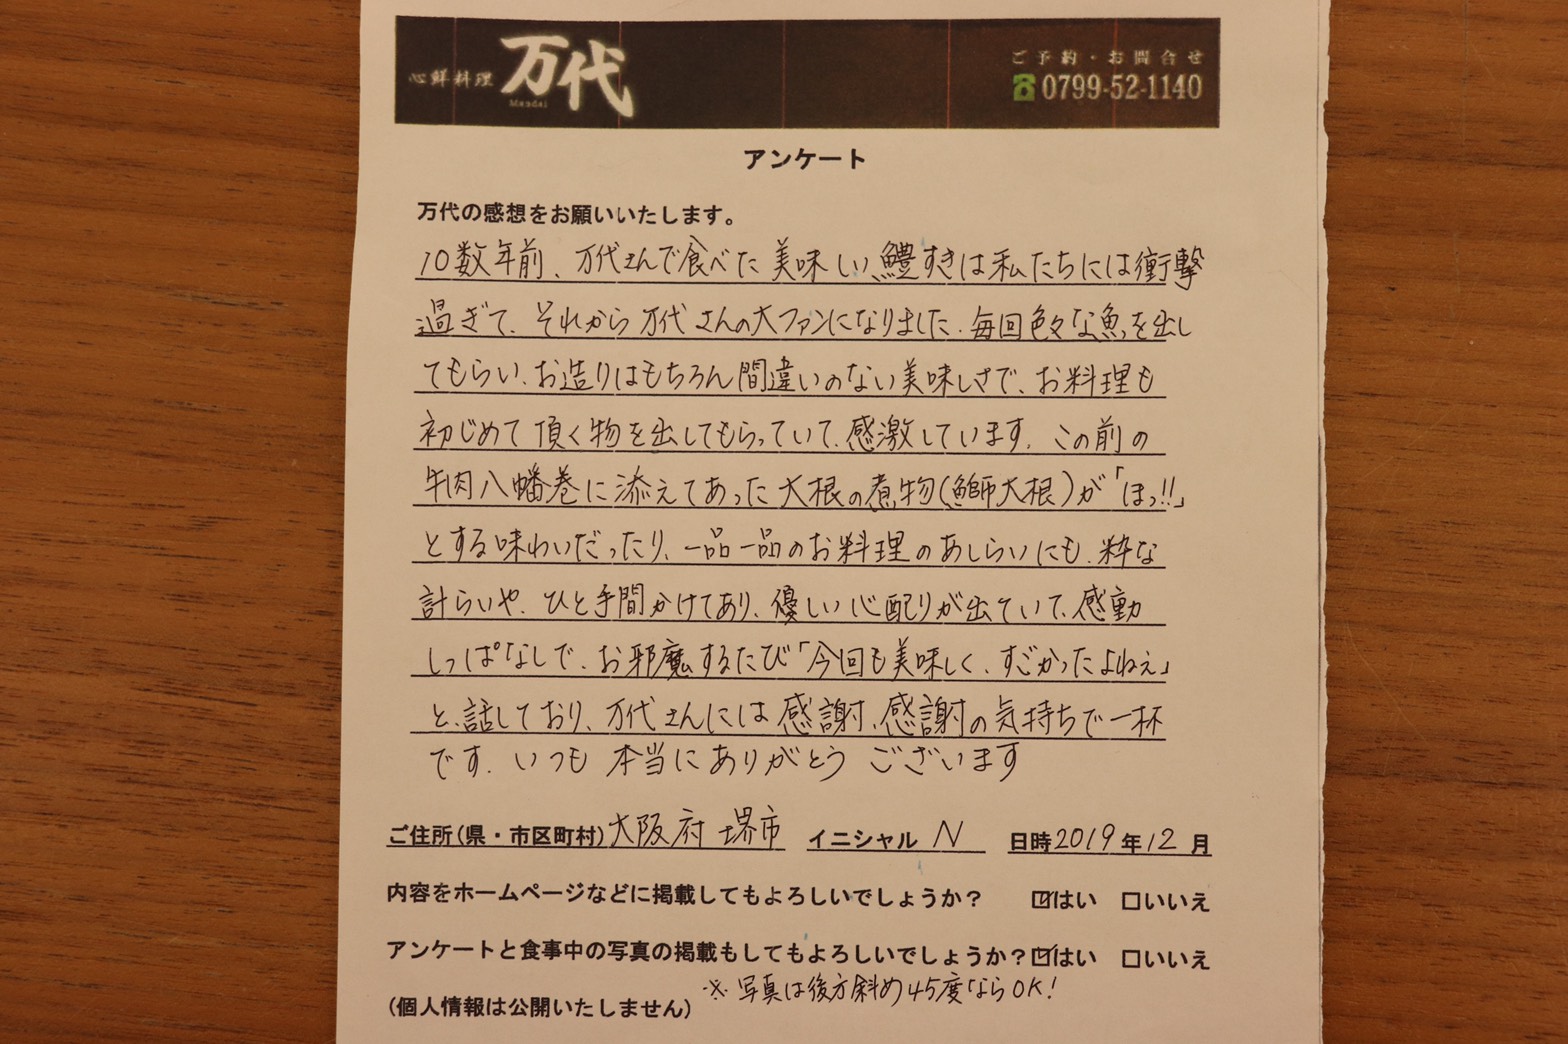 心鮮料理 万代
Mandai
ご予約・お問合せ
☎0799-52-1140
アンケート
万代の感想をお願いいたします。
10数年前、万代さんで食べた美味しい鱧すきは私たちには衝撃
過ぎて、それから万代さんの大ファンになりました。毎回色々な魚を出し
てもらい、お造りはもちろん間違いのない美味しさで、お料理も
初じめて頂く物を出してもらっていて、感激しています。この前の
牛肉八幡巻に添えてあった大根の煮物(鰤大根)が「ほっ!!」
とする味わいだったり、一品一品のお料理のあしらいにも、粋な
計らいや、ひと手間かけてあり、優しい心配りが出ていて、感動
しっぱなしで、お邪魔するたび「今回も美味しく、すごかったよねぇ」
と、話しており、万代さんには感謝、感謝の気持ちで一杯
です。いつも本当にありがとうございます
ご住所(県・市区町村)大阪府堺市 イニシャル N 日時2019年12月
内容をホームページなどに掲載してもよろしいでしょうか? ☑はい □いいえ
アンケートと食事中の写真の掲載もしてもよろしいでしょうか?☑はい □いいえ
※写真は後方斜め45度ならOK!
(個人情報は公開いたしません)